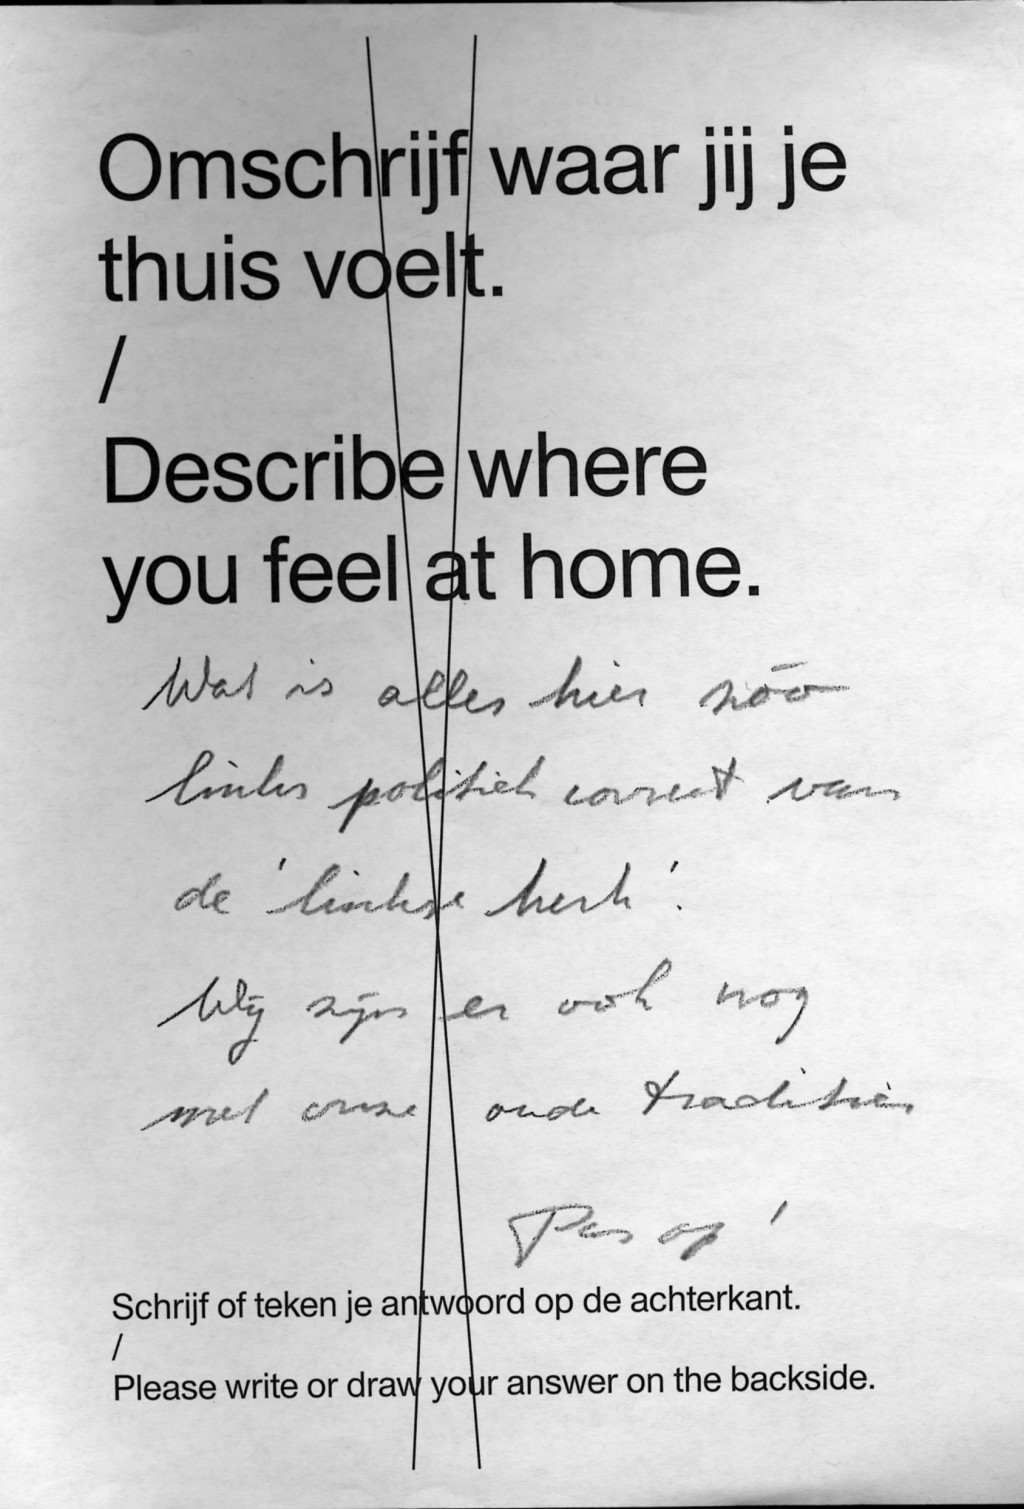 Omschrijf waar jij je
thuis voelt.
/
Describe where
you feel at home.
Wat is alles hier zóó
links politiek correct van
de 'linkse kerk'.
Wij zijn er ook nog
met onze oude tradities
Pas op!
Schrijf of teken je antwoord op de achterkant.
/
Please write or draw your answer on the backside.